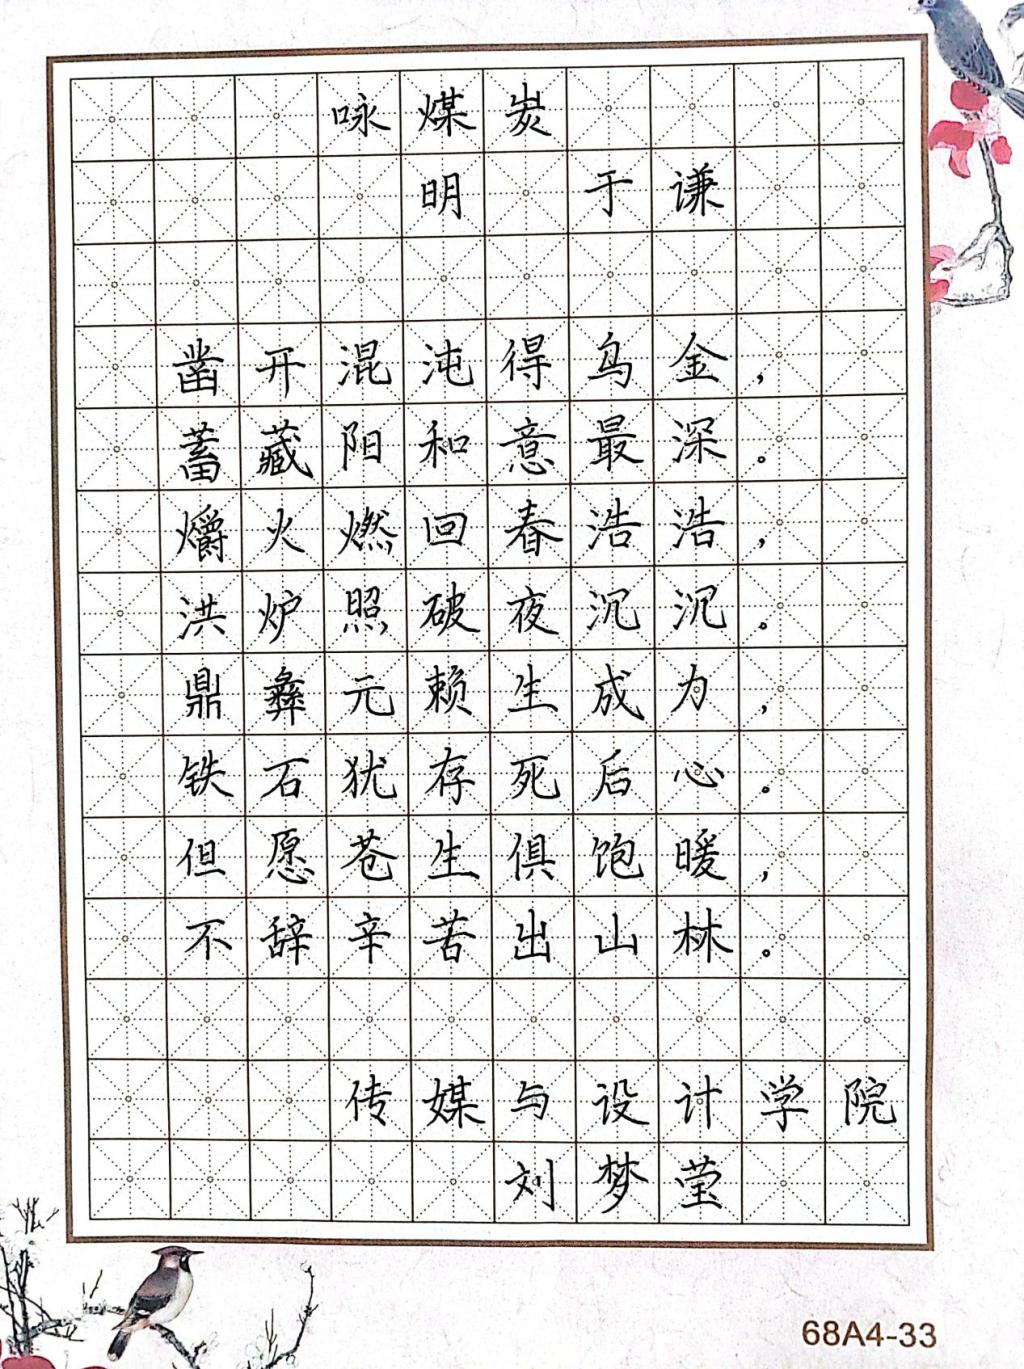 咏煤炭
明 于谦
凿开混沌得乌金，
蓄藏阳和意最深。
爝火燃回春浩浩，
洪炉照破夜沉沉。
鼎彝元赖生成力，
铁石犹存死后心。
但愿苍生俱饱暖，
不辞辛苦出山林。
传媒与设计学院
刘梦莹
68A4-33